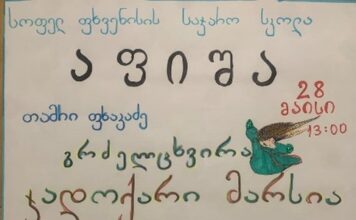 სოფელ ფხვენისის საჯარო სკოლა
აფიშა
28
მაისი
13:00
თამრი ფხაკაძე
გრძელცხვირა
ჯადოქარი მარსია